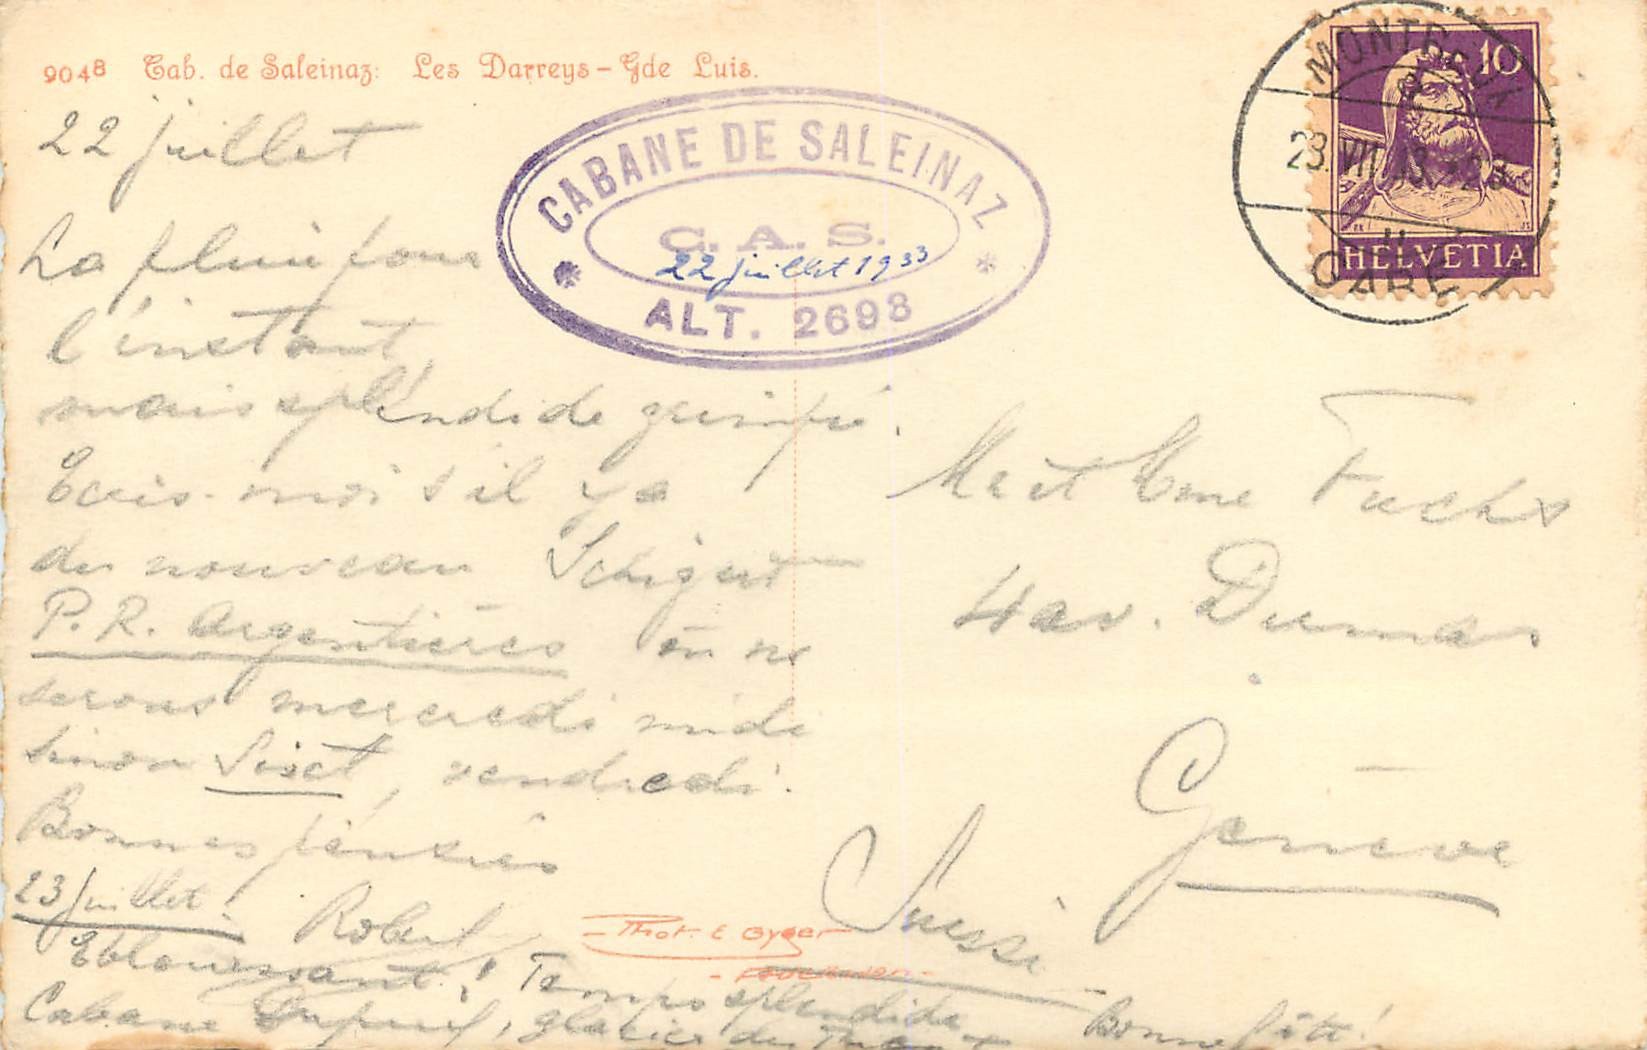 9048 Cab. de Saleinaz: Les Darreys - Gde Luis.
CABANE DE SALEINAZ
C. A. S.
22 juillet 1933
ALT. 2698
MONTREUX
23.VII.33.-23
GARE
10
HELVETIA
22 juillet
La pluie pour
l'instant,
mais splendide grimpé.
Ecris-moi s'il y a
du nouveau
P. R. Argentières où ne
serons mercredi midi
sinon, vendredi.
Bonnes pensées
Robert
23 juillet!
Eblouissant! Temps splendide
Cabane Dupuis, glacier du Trient
Bonne fête!
Mr et Mme Fuchs
4 av. Dumas
Genève
Suisse
Phot. E Gyger